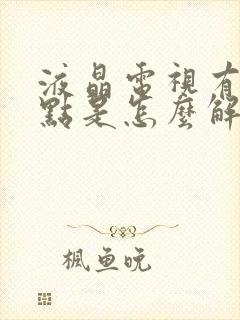 液晶電視有
點是怎麼解
楓魚晚